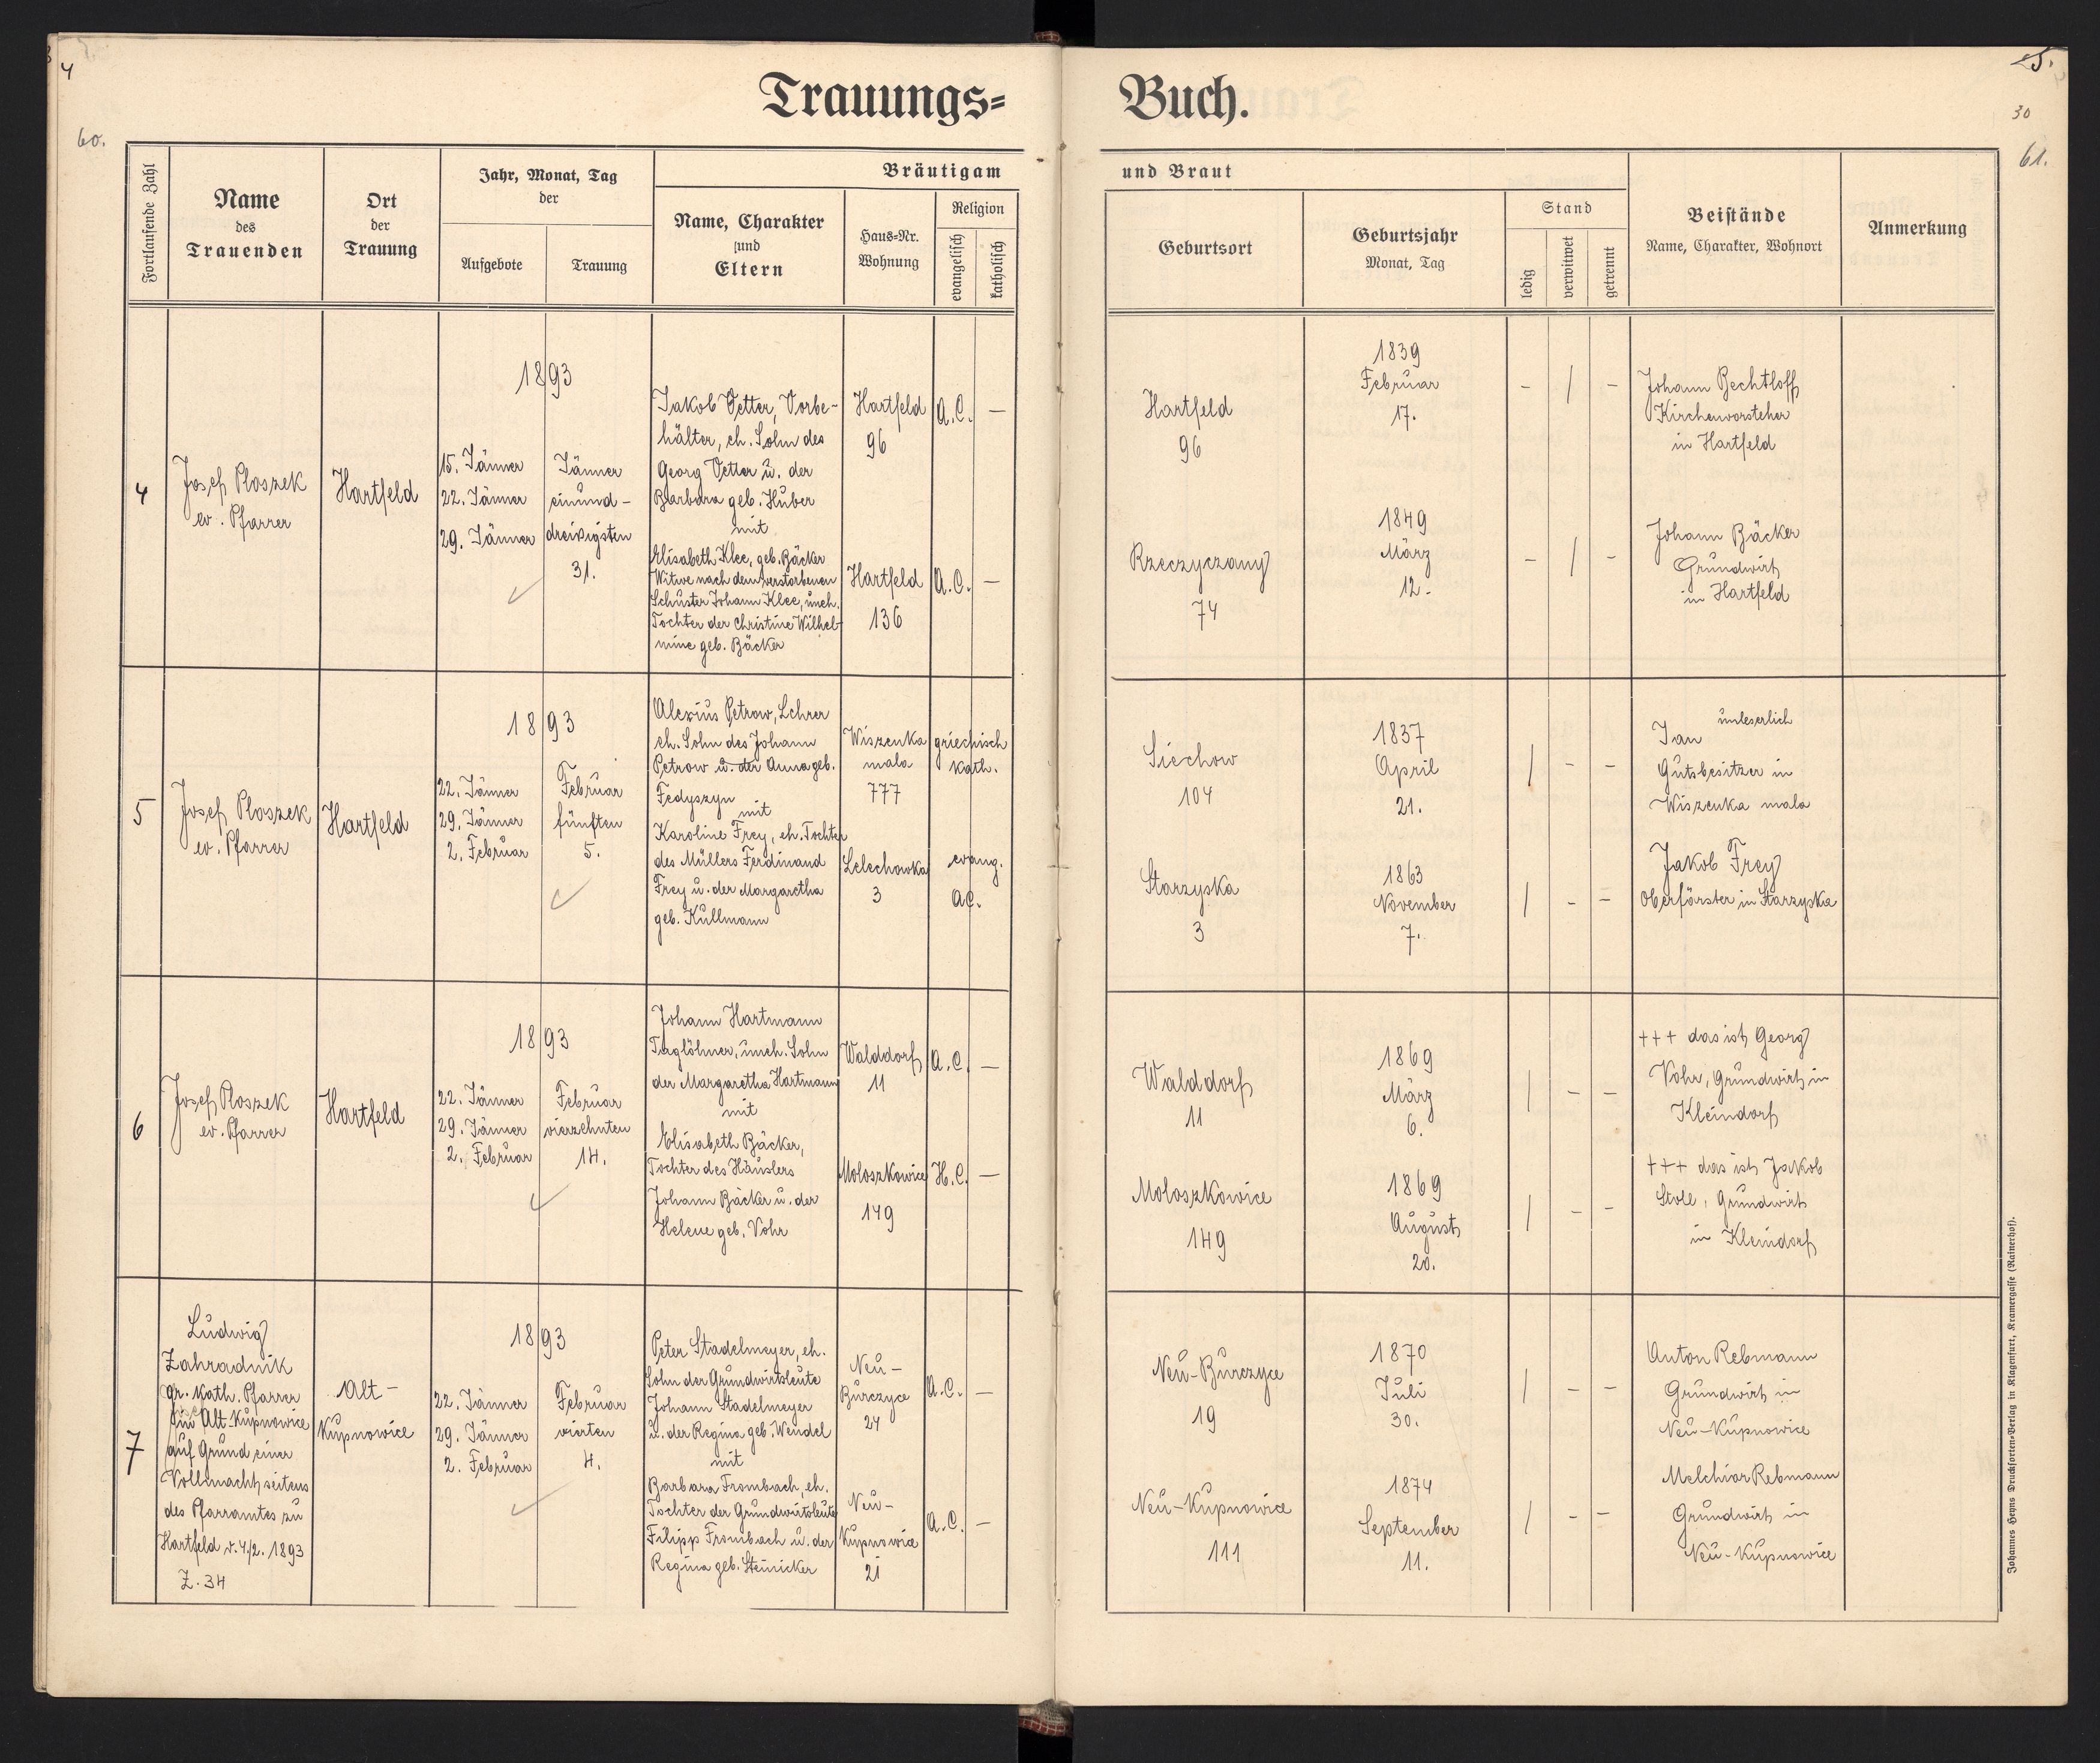 4
60.
Trauungs=
Fortlaufende Zahl
Name
des
Trauenden
Ort
der
Trauung
Jahr, Monat, Tag
der
Aufgebote
Trauung
Bräutigam
Name, Charakter
und
Eltern
Haus=Nr.
Wohnung
Religion
evangelisch
katholisch
4
Josef Ploszek
ev. Pfarrer
Hartfeld
1893
15. Jänner
22. Jänner
29. Jänner
Jänner
einund-
dreißigsten
31.
Jakob Vetter, Vorbe-
hälter, eh. Sohn des
Georg Vetter u. der
Barbara geb. Huber
mit
Elisabeth Klee, geb. Bäcker
Witwe nach dem verstorbenen
Schuster Johann Klee, uneh.
Tochter der Christine Wilhel-
mine geb. Bäcker
Hartfeld
96
A.C. —
Hartfeld
136
A.C. —
5
Josef Ploszek
ev. Pfarrer
Hartfeld
1893
22. Jänner
29. Jänner
2. Februar
Februar
fünften
5.
Alexius Petrow, Lehrer
eh. Sohn des Johann
Petrow u. der Anna geb.
Fedyszyn
mit
Karoline Frey, eh. Tochter
des Müllers Ferdinand
Frey u. der Margaretha
geb. Kullmann
Wiszenka
mala
777
griechisch
kath.
Lelechowka
3
evang.
A.C.
6
Josef Ploszek
ev. Pfarrer
Hartfeld
1893
22. Jänner
29. Jänner
2. Februar
Februar
vierzehnten
14.
Johann Hartmann
Taglöhner, uneh. Sohn
der Margaretha Hartmann
mit
Elisabeth Bäcker,
Tochter des Häuslers
Johann Bäcker u. der
Helene geb. Vohr
Walddorf
11
A.C. —
Moloszkowice
149
H.C. —
7
Ludwig
Zahradnik
gr. kath. Pfarrer
in Alt-Kupnowice
auf Grund einer
Vollmacht seitens
des Pfarramtes zu
Hartfeld v. 4./2. 1893
Z. 34
Alt-
Kupnowice
1893
22. Jänner
29. Jänner
2. Februar
Februar
vierten
4.
Peter Stadelmeyer, eh.
Sohn der Grundwirtsleute
Johann Stadelmeyer
u. der Regina geb. Wendel
mit
Barbara Frombach, eh.
Tochter der Grundwirtsleute
Filipp Frombach u. der
Regina geb. Steinicker
Neu-
Burczyce
24
A.C. —
Neu-
Kupnowice
21
A.C. —
5.
30
61.
Buch.
und Braut
Geburtsort
Geburtsjahr
Monat, Tag
Stand
ledig
verwitwet
getrennt
Beistände
Name, Charakter, Wohnort
Anmerkung
Hartfeld
96
1839
Februar
17.
- / -
Johann Bechtloff
Kirchenvorsteher
in Hartfeld
Rzeczyczany
74
1849
März
12.
- / -
Johann Bäcker
Grundwirt
in Hartfeld
Siechow
104
1837
April
21.
/ - -
Jan unleserlich
Gutsbesitzer in
Wiszenka mala
Starzyska
3
1863
November
7.
/ - -
Jakob Frey
Oberförster in Starzyska
Walddorf
11
1869
März
6.
/ - -
+++ das ist Georg
Vohr, Grundwirt in
Kleindorf
Moloszkowice
149
1869
August
20.
/ - -
+++ das ist Jakob
Stoll, Grundwirt
in Kleindorf
Neu-Burczyce
19
1870
Juli
30.
/ - -
Anton Rebmann
Grundwirt in
Neu-Kupnowice
Neu-Kupnowice
111
1874
September
11.
/ - -
Melchior Rebmann
Grundwirt in
Neu-Kupnowice
Johannes Heyns Drucksorten=Verlag in Klagenfurt, Kramergasse (Rainerhof).